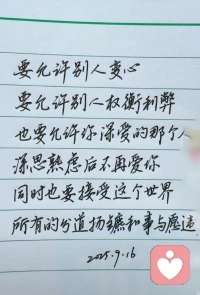 要允许别人变心
要允许别人权衡利弊
也要允许你深爱的那个人
深思熟虑后不再爱你
同时也要接受这个世界
所有的分道扬镳和事与愿违
2025.9.16